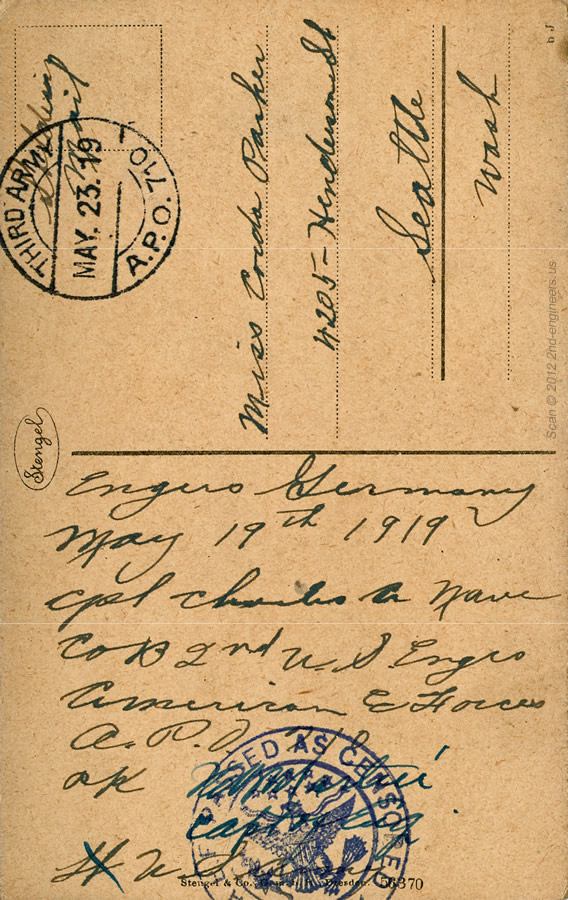 Soldiers
Mail
THIRD ARMY
MAY. 23. 19
A.P.O. 710
Miss Corda Parker
4205 - Henderson St
Seattle
Wash
Stengel
b J
Engers Germany
May 19th 1919
Cpl Charles A Nave
Co B 2nd U.S Engrs
American E Forces
A.P.O. 710
OK
Capt
PASSED AS CENSORED
U S Army
Stengel & Co. Dresden. 56370
Scan © 2012 2nd-engineers.us